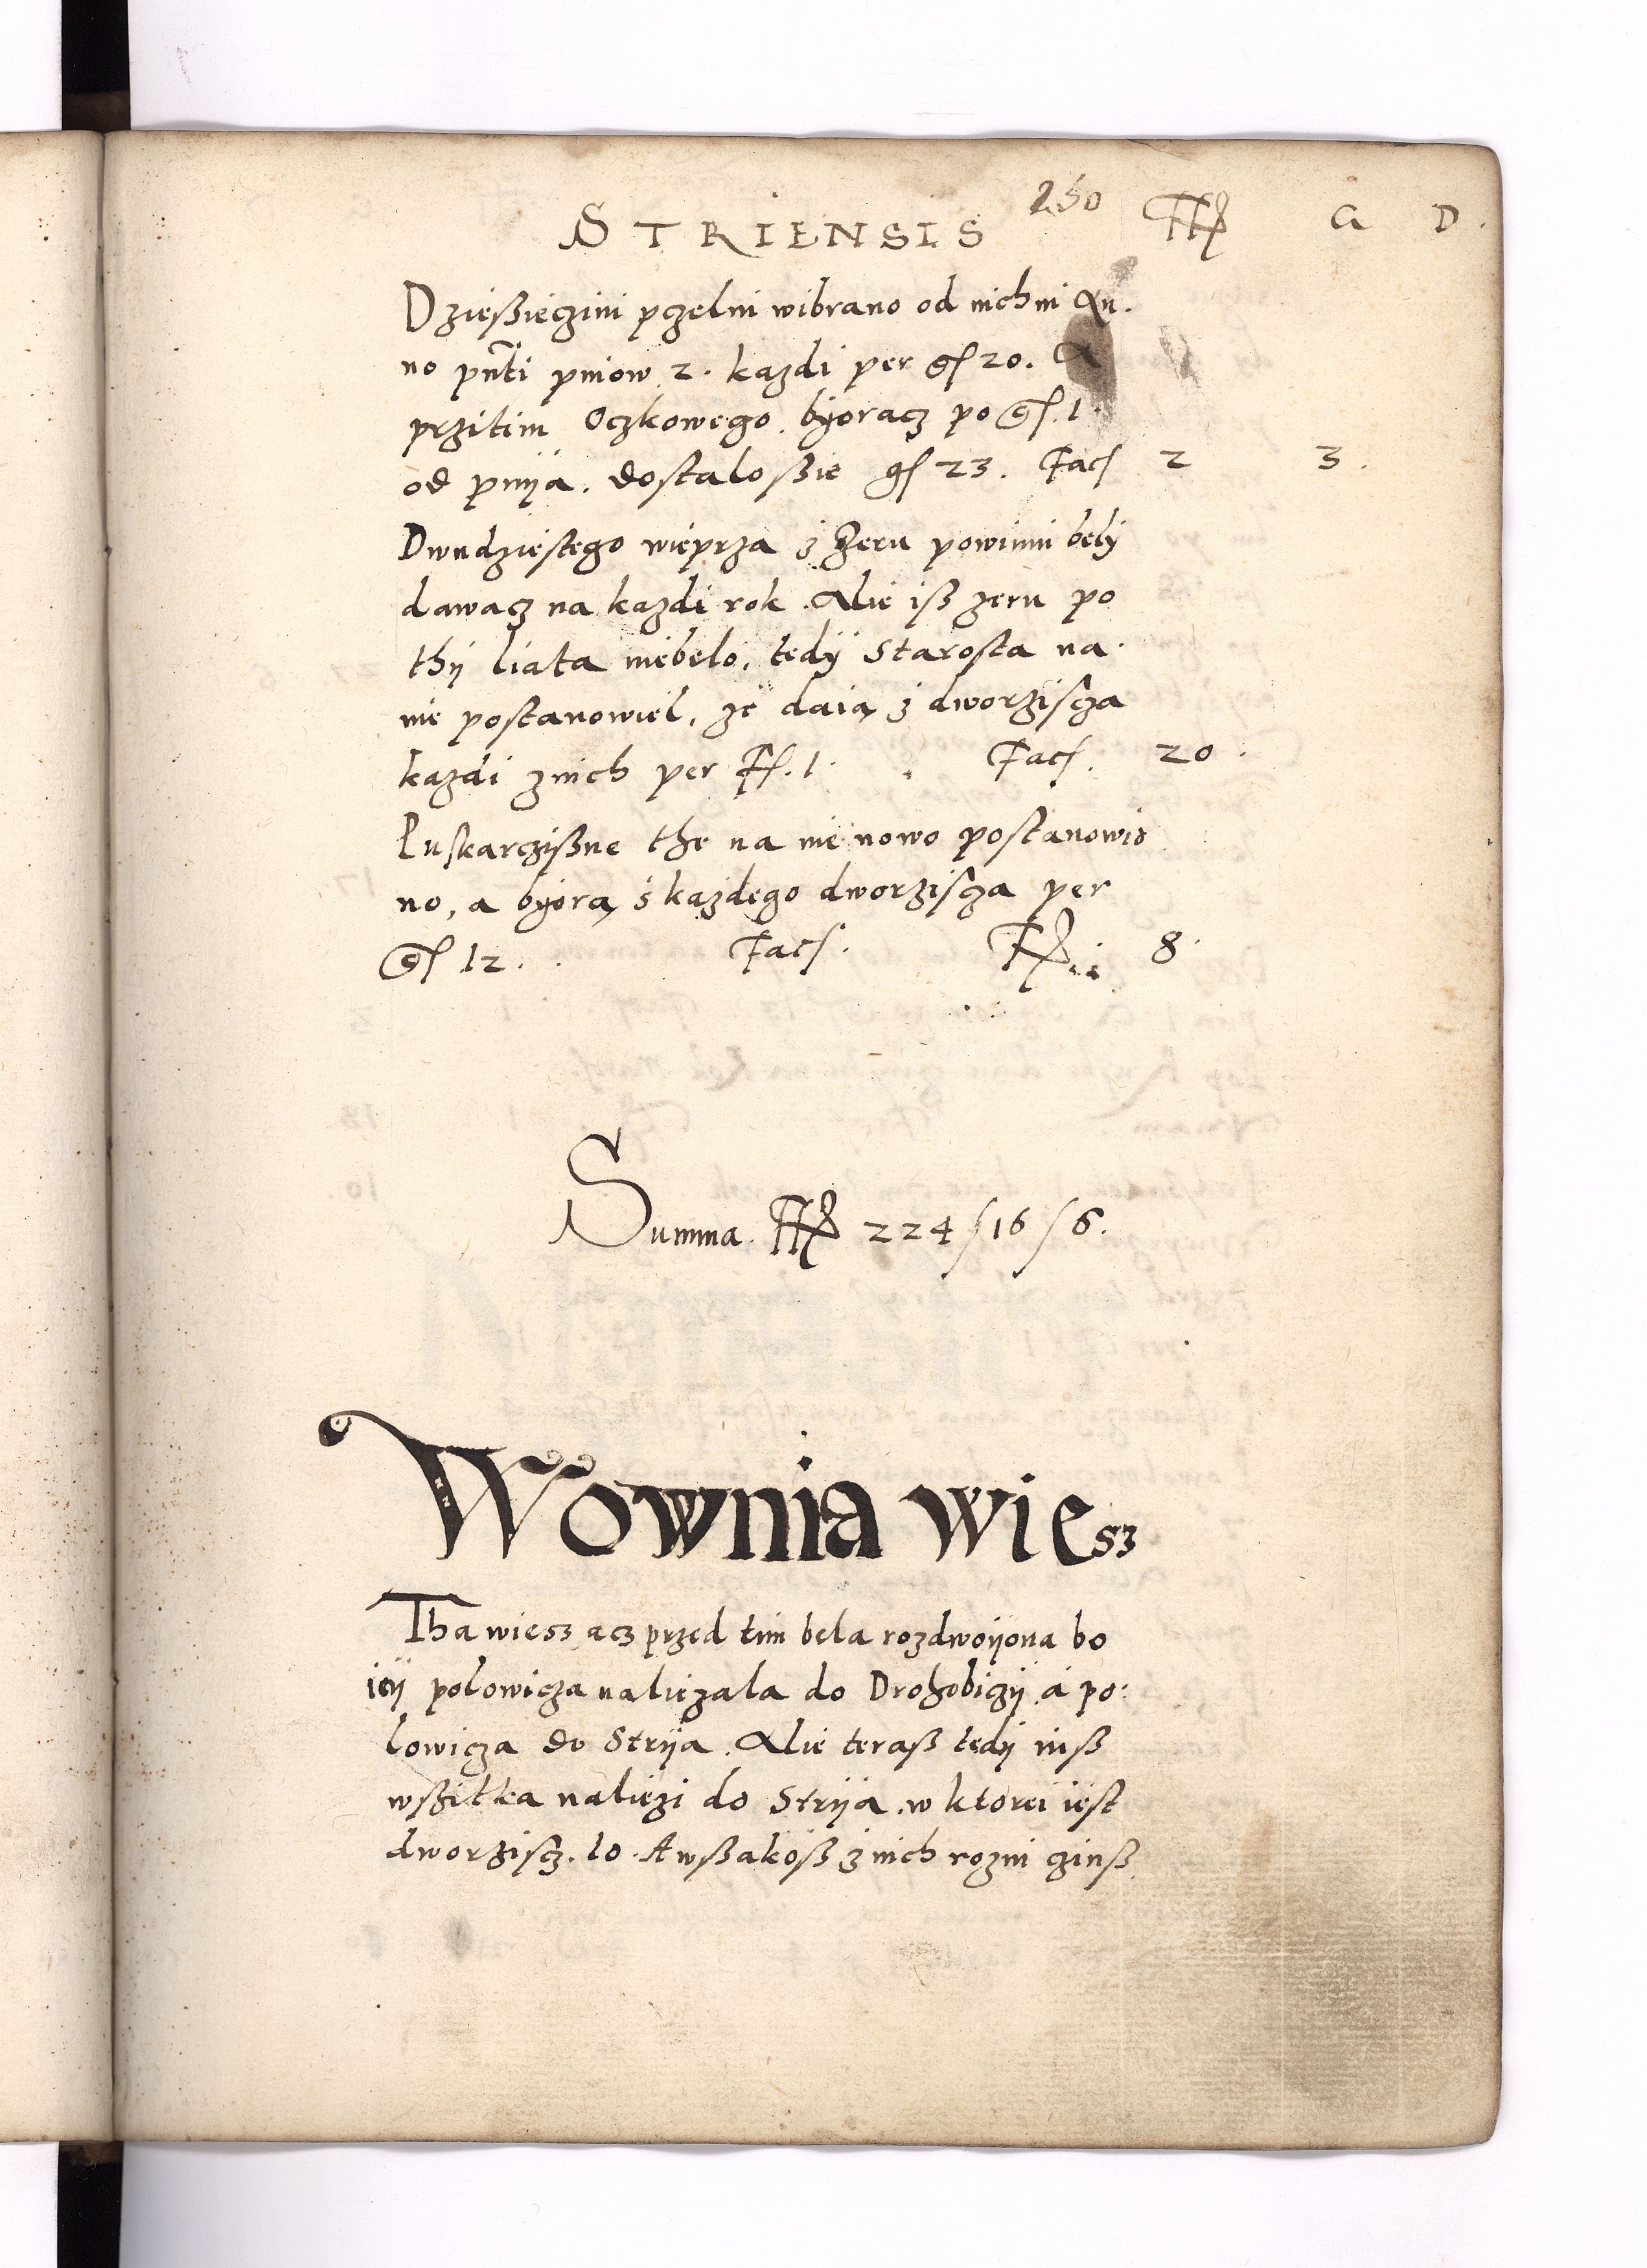 250
STRIENSIS Fl G D.
Dzießieczini pczelni wibrano od nich ni An.
no pnti pniow 2. każdi per gs 20. A
przitim Oczkowego, byoracz po gs. 1.
od pnya. dostalo ßie gs 23. Facs 2 3.
Dwudziestego wieprza z Zeru powinni bely
dawacz na kazdi rok. Alie iß zeru po
thy liata niebelo, tedy Starosta na
nie postanowiel, ze daią z dworziscza
kazdi znich per Fl. 1. Facs. 20.
Puskarczißne the na nie nowo postanowio
no, a byorą s kazdego dworziscza per
gs 12. Facs. Fl. 8.
Summa. Fl 224/16/6.
Wownia wiesz
Tha wiesz acz przed tim bela rozdwoyona bo
iey polowicza naliezala do Drohobiczy a po:
lowicza do Stryia. Alie teraß tedy iuß
wßitka naliezi do Stryia. w ktorei iest
dworziscz. 10. A wßakoß z nich rozni czinß.